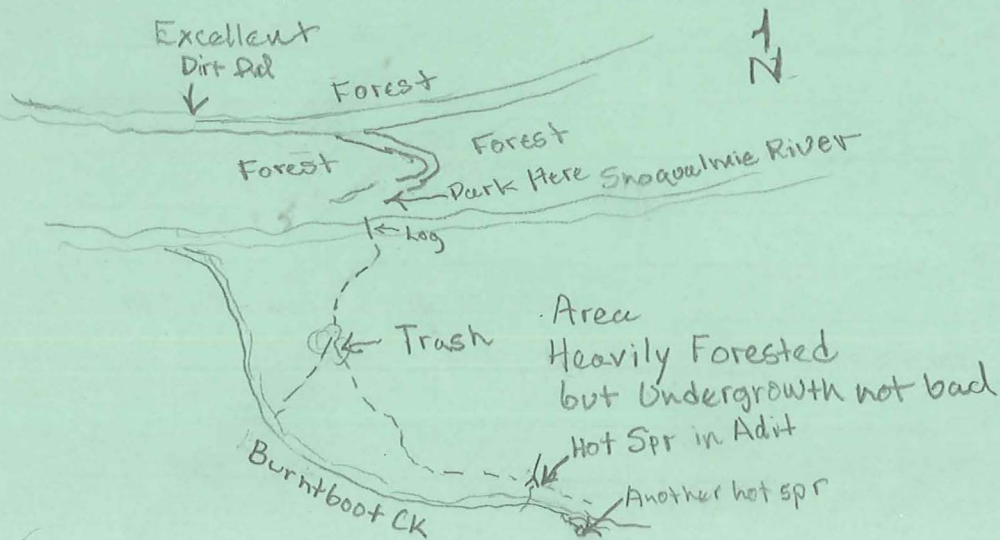 Excellent
Dirt Rd
Forest
N
Forest
Forest
Park Here
Snoqualmie River
Log
Trash
Area
Heavily Forested
but Undergrowth not bad
Hot Spr in Adit
Another hot spr
Burntboot CK